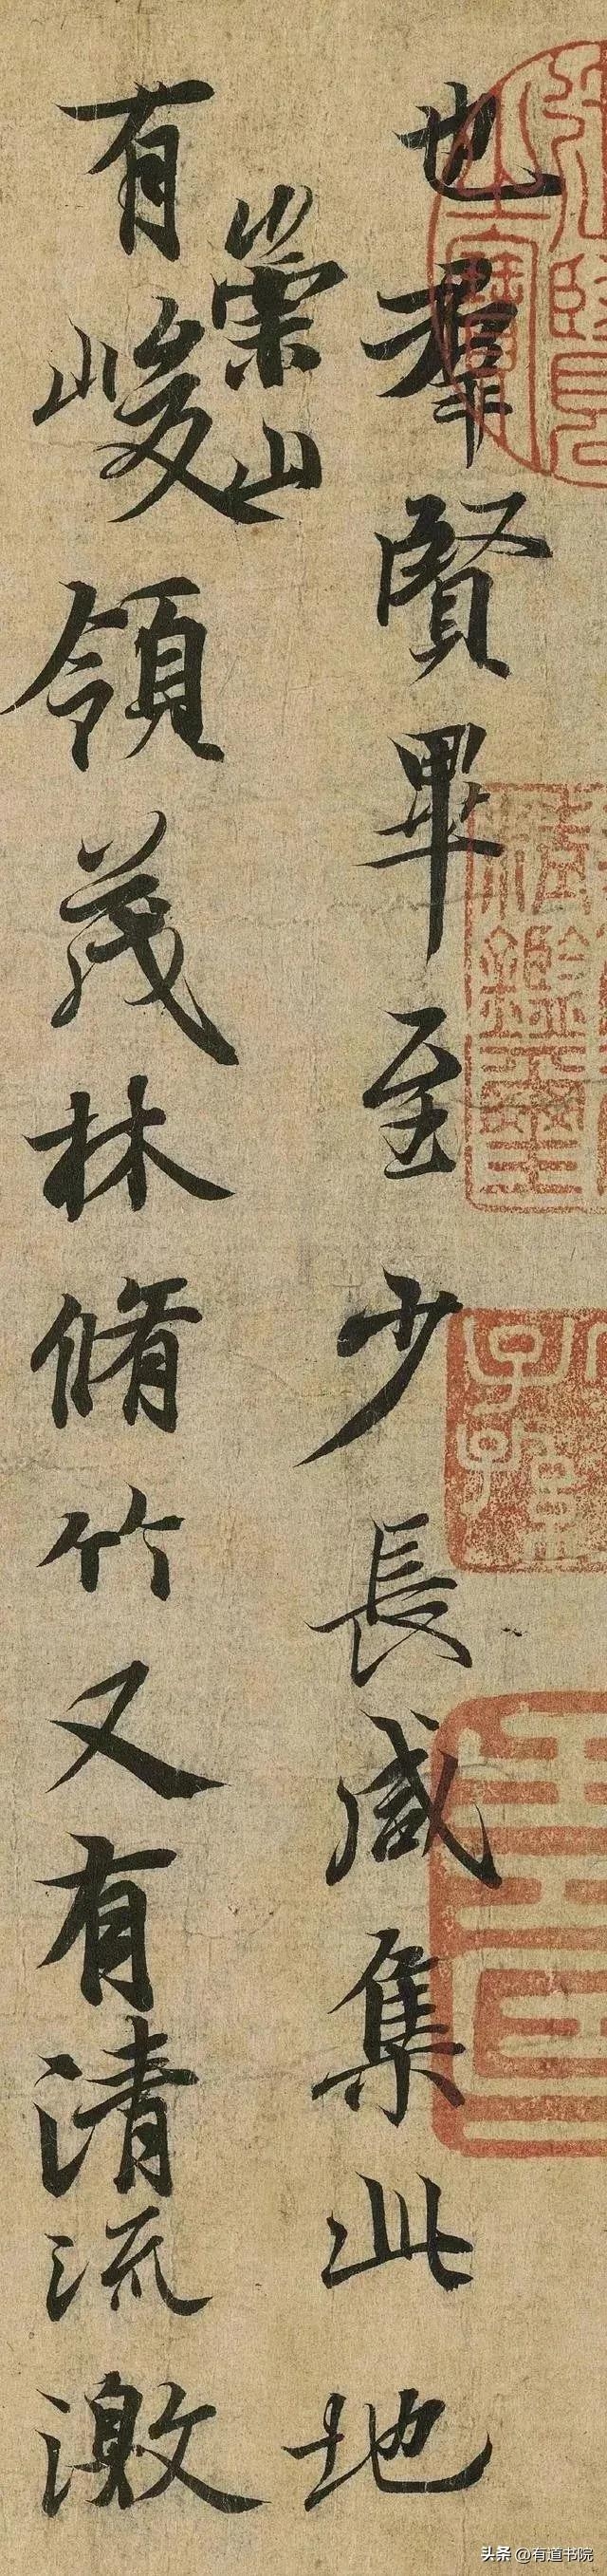 也羣賢畢至少長咸集此地
有
崇山
峻領茂林脩竹又有清流激
头条 @有道书院